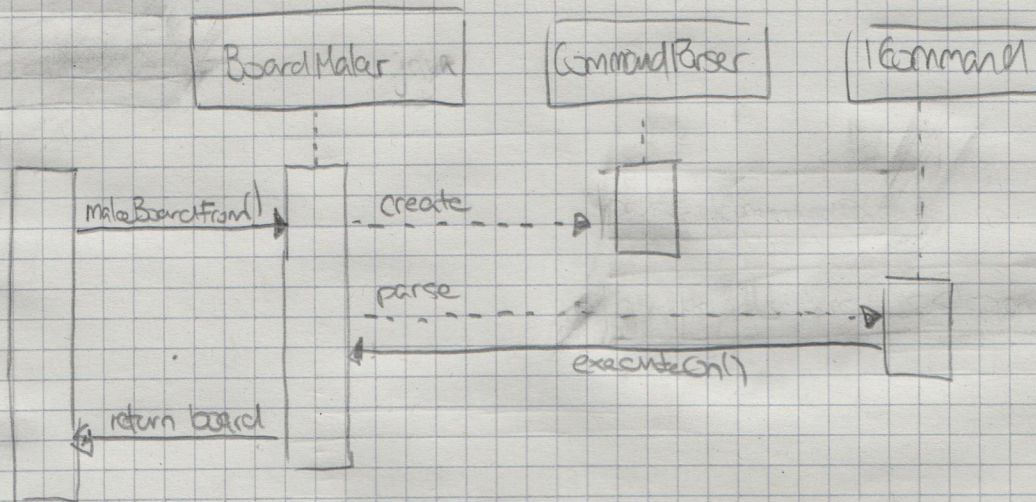 BoardMaker
CommandParser
ICommand
makeBoardFrom()
create
parse
executeOn()
return board